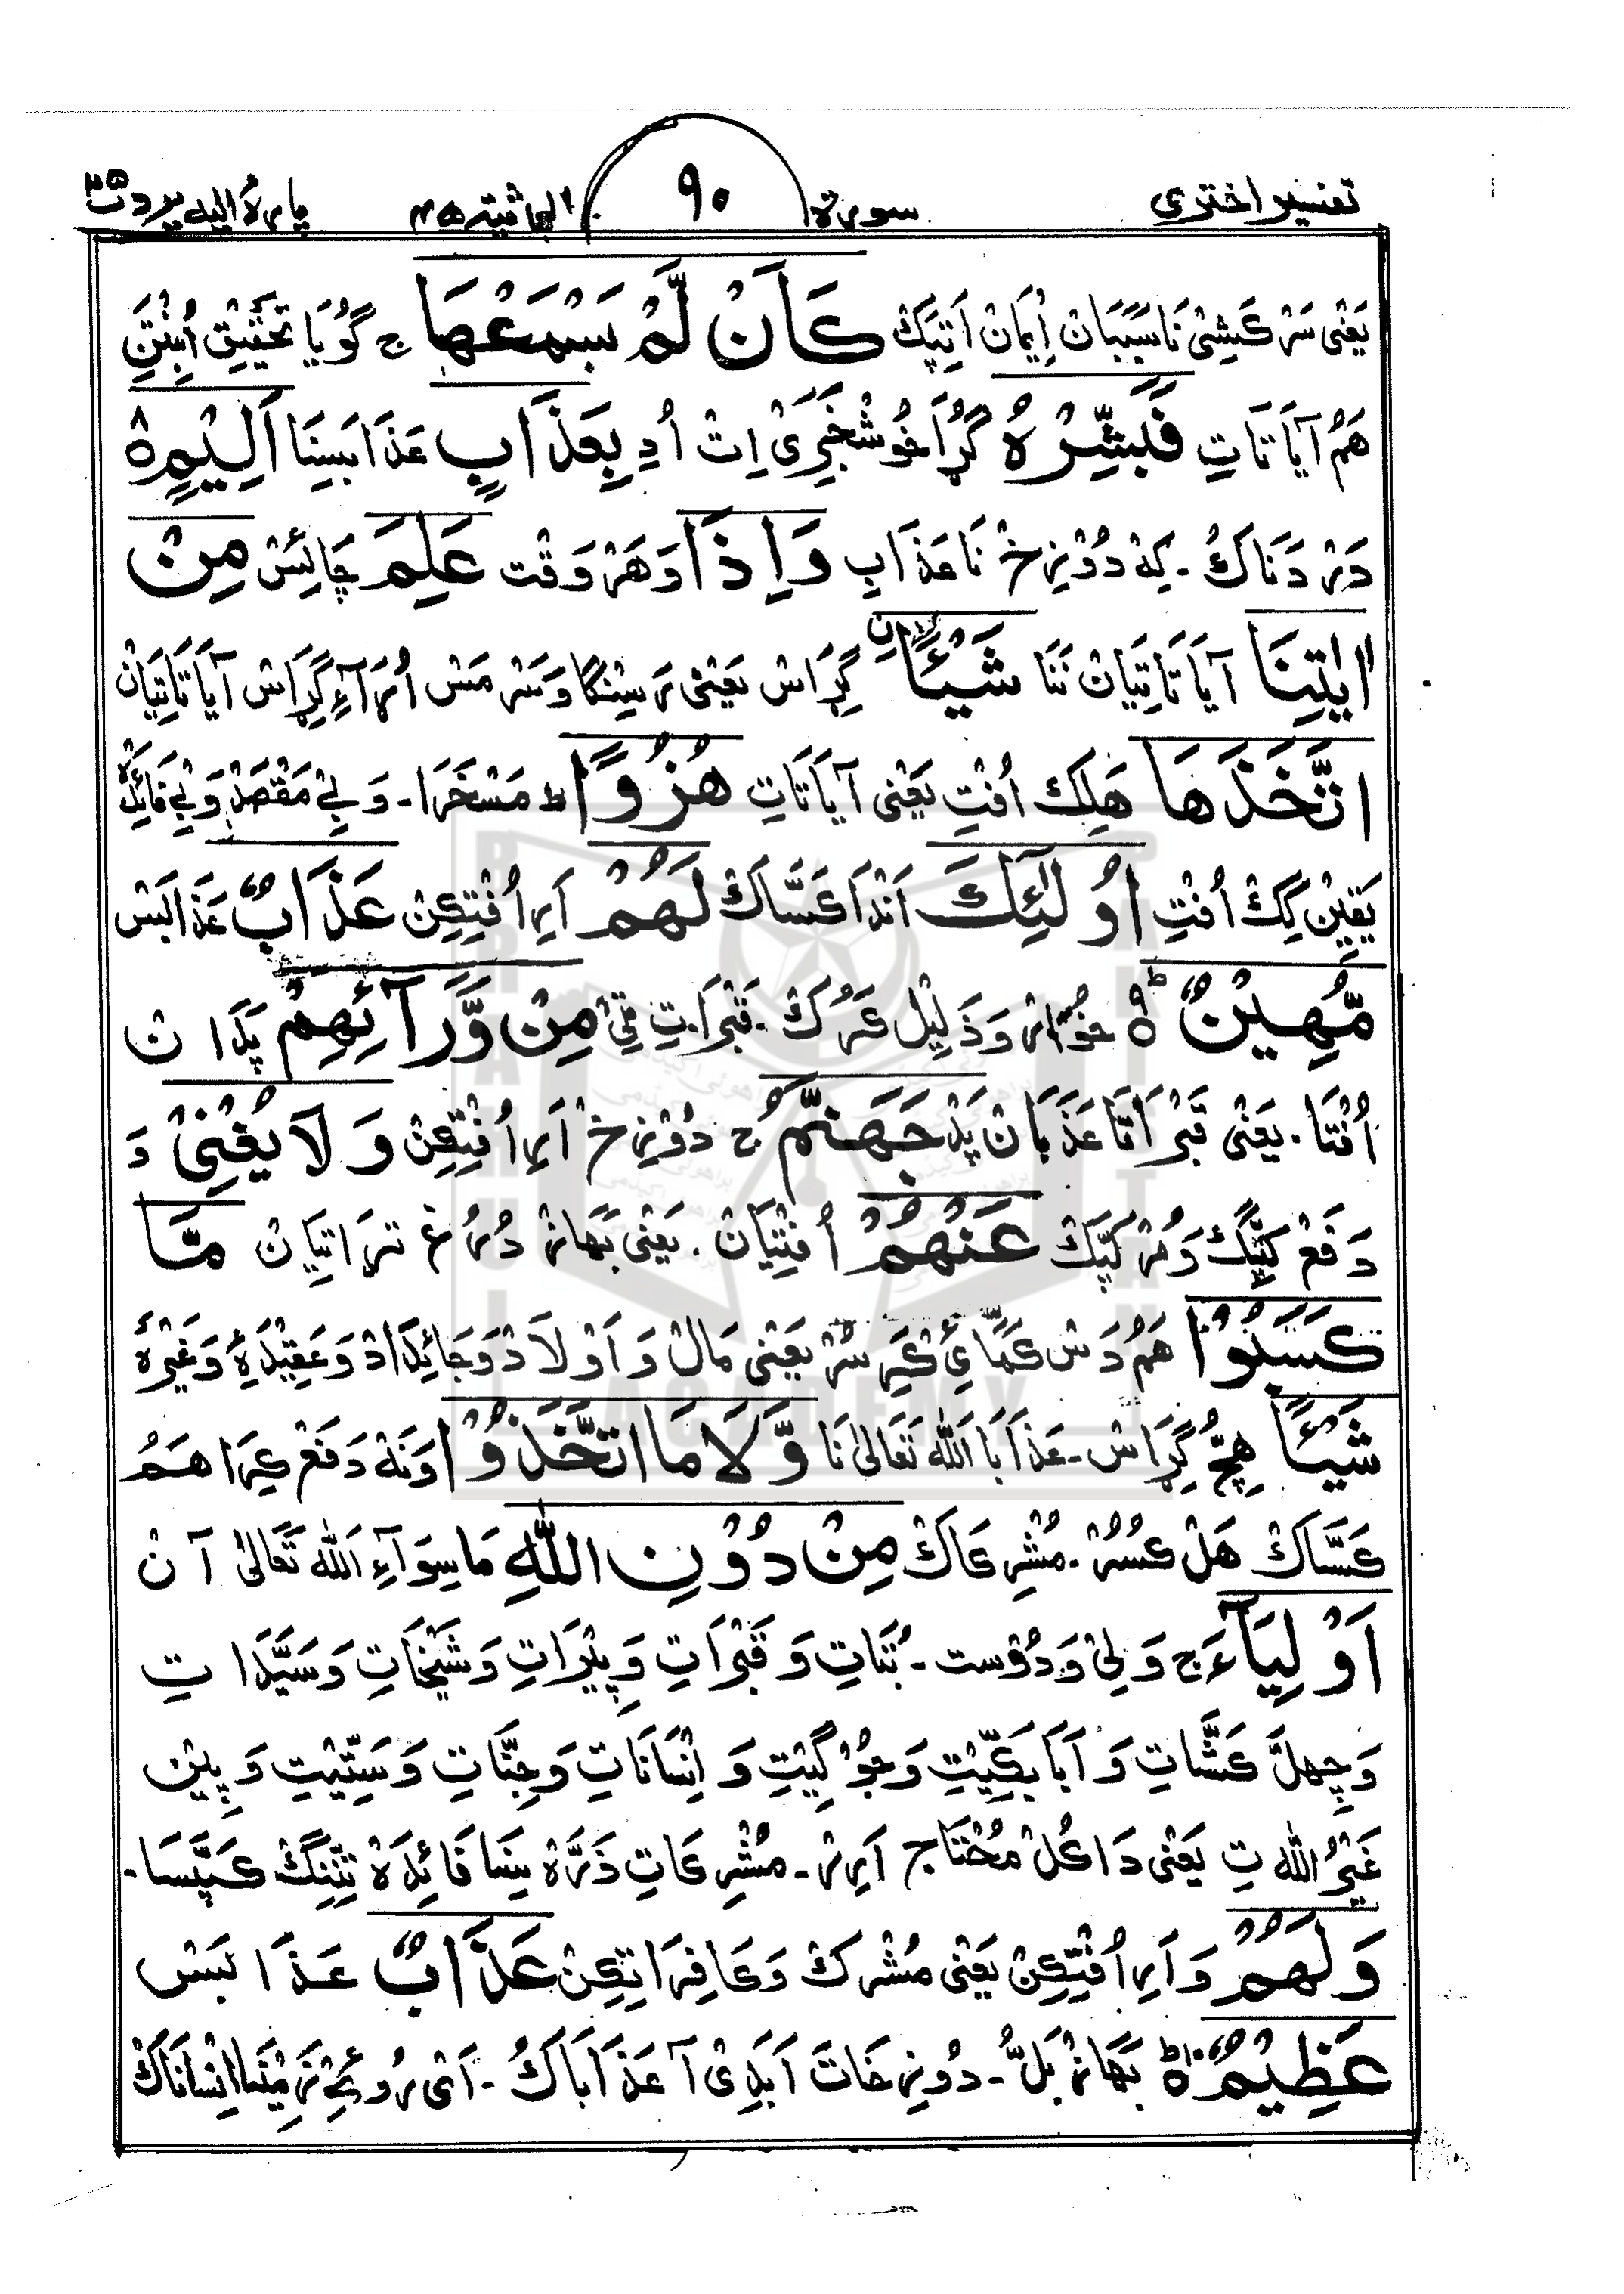 تفسیر اختری سورۃ ۹۰ الجاثیتہ ۴۵ پارۂ الیہ یرد ۲۵
یَعْنِی سَرْ کَشِیْ نَا سَبَبَانْ اِیمَانْ اَتِپَکْ کَاَنْ لَّمْ یَسْمَعْهَا ج گُویَا تَحْقِیْقْ اُبِنْتَنِ
هَمُ آیَا تَاتِ فَبَشِّرْہُ گُڑَا خُوشْخَبَرِیْ اِتْ اُدِ بِعَذَابٍ عَذَابَسِنَا اَلِیْمٍ ۸
دَرْدَنَاکُ ۔ کِہْ دُوْزِخْ نَا عَذَابِ وَاِذَا وَهَرْ وَقْت عَلِمَ چَائِسْ مِنْ
اٰیٰتِنَا آیَا تَاتِیَانْ نَنَا شَیْئًا گِڑَاسْ یَعْنِیْ رَسِنْگَا وَسَرْ مَسْ اُرَآءِ گِڑَاسْ آیَا تَاتِیَانْ
اتَّخَذَهَا هَلِکْ اُفْتِ یَعْنِی آیَاتَاتِ هُزُوًا ط مَسْخَرَا ۔ وَ بِیْ مَقْصَدْ وَ بِیْ فَائِدَہْ
یَقِیْنْ کِکْ اُفْتِ اُولٰٓئِکَ اَنْدَا کَسَّاکْ لَهُمْ اَرِ اُفْتِکِنْ عَذَابٌ عَذَابَسْ
مُّهِیْنٌ ۹ خُوَارْ وَ ذَلِیْل کَرُکْ ۔ قَبْرَاتِ ٹِیْ مِنْ وَّرَآئِهِمْ پَدَا نْ
اُفْتَا ۔ یَعْنِی قَبْرَاتَا عَذَابَانْ پَدْ جَهَنَّمُ ج دُوْزِخْ اَرِ اُفْتِکِنْ وَلَا یُغْنِیْ وَ
دَفَعْ کَپَّکْ وَ مُرْ کَپَّکْ عَنْهُمْ اُفْتِیَانْ ۔ یَعْنِی بَهَازْ دُرُغْ تَرَاتِیَانْ مَّا
کَسَبُوْا هَمُ دَسْ کَمَائِیْ کَرِسُرْ یَعْنِی مَالْ وَ اَوْلَادْ وَ جَائِدَادْ وَ عَقِیْدَہْ وَغَیْرَہْ
شَیْئًا هِچُّ گِڑَاسْ ۔ عَذَابَا اللّٰہ تَعَالیٰ نَا وَّلَا مَا اتَّخَذُوْا وَنَہْ دَفَعْ کِرَا هَمُ
کَسَّاکْ هَلْ کُسُرْ ۔ مُشْرِکَاکْ مِنْ دُوْنِ اللّٰهِ مَاسِوَآءِ اَللّٰہ تَعَالیٰ آ نْ
اَوْلِیَآءَ ج وَلِیْ وَ دُوْست ۔ بُتَاتِ وَ قَبْرَاتِ وَ پِیْرَاتِ وَ شَیْخَاتِ وَ سَیَّدَا تِ
وَ چِهِلَّ کَشَّاتِ وَ اَبَابَکِّیْتِ وَ جُوْگِیْتِ وَ اِنْسَانَاتِ وَ جِنَّاتِ وَ سَتِّیْتِ وَ پِیْن
غَیْرُ اللّٰہ تِ یَعْنِی دَا کُلْ مُحْتَاج اَرِرْ ۔ مُشْرِکَاتِ ذَرَّہْ ئِنَا فَائِدَہْ تِنِنِگْ کَپَّسَا ۔
وَلَهُمْ وَ اَرِ اُفْتِکِنْ یَعْنِی مُشْرِکْ وَ کَافِرَاتِکِنْ عَذَابٌ عَذَا بَسْ
عَظِیْمٌ ۱۰ بَهَازْ بَلُّ ۔ دُوزِخَاتَ اَبَدِیْ آ عَذَابَاکُ ۔ اَیْ رُوئِے زَمِیْنَا اِنْسَانَاکْ